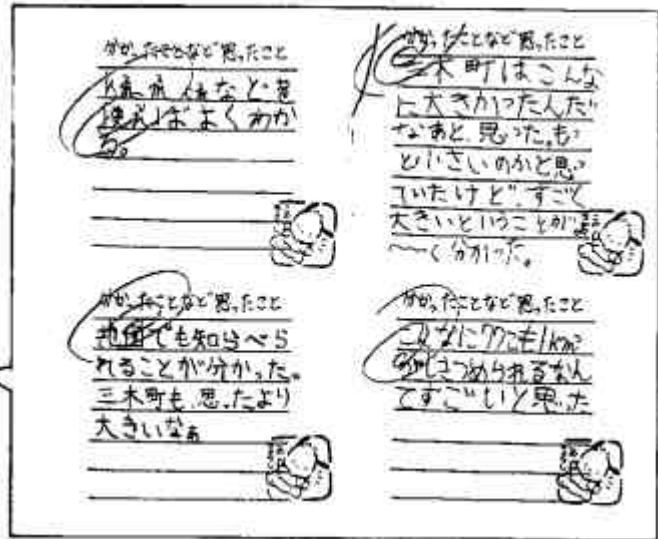 分かったことなど思ったこと
使えばよくわか
る。
分かったことなど思ったこと
三木町はこんな
に大きかったんだ
なあと、思った。も
と小さいのかと思
ていたけど、すごく
大きいということが
く分かった。
分かったことなど思ったこと
地図でも知らべら
れることが分かった。
三木町も、思ったより
大きいなぁ
分かったことなど思ったこと
こんなに77こも1km²
がしきつめられるなん
てすごいと思った